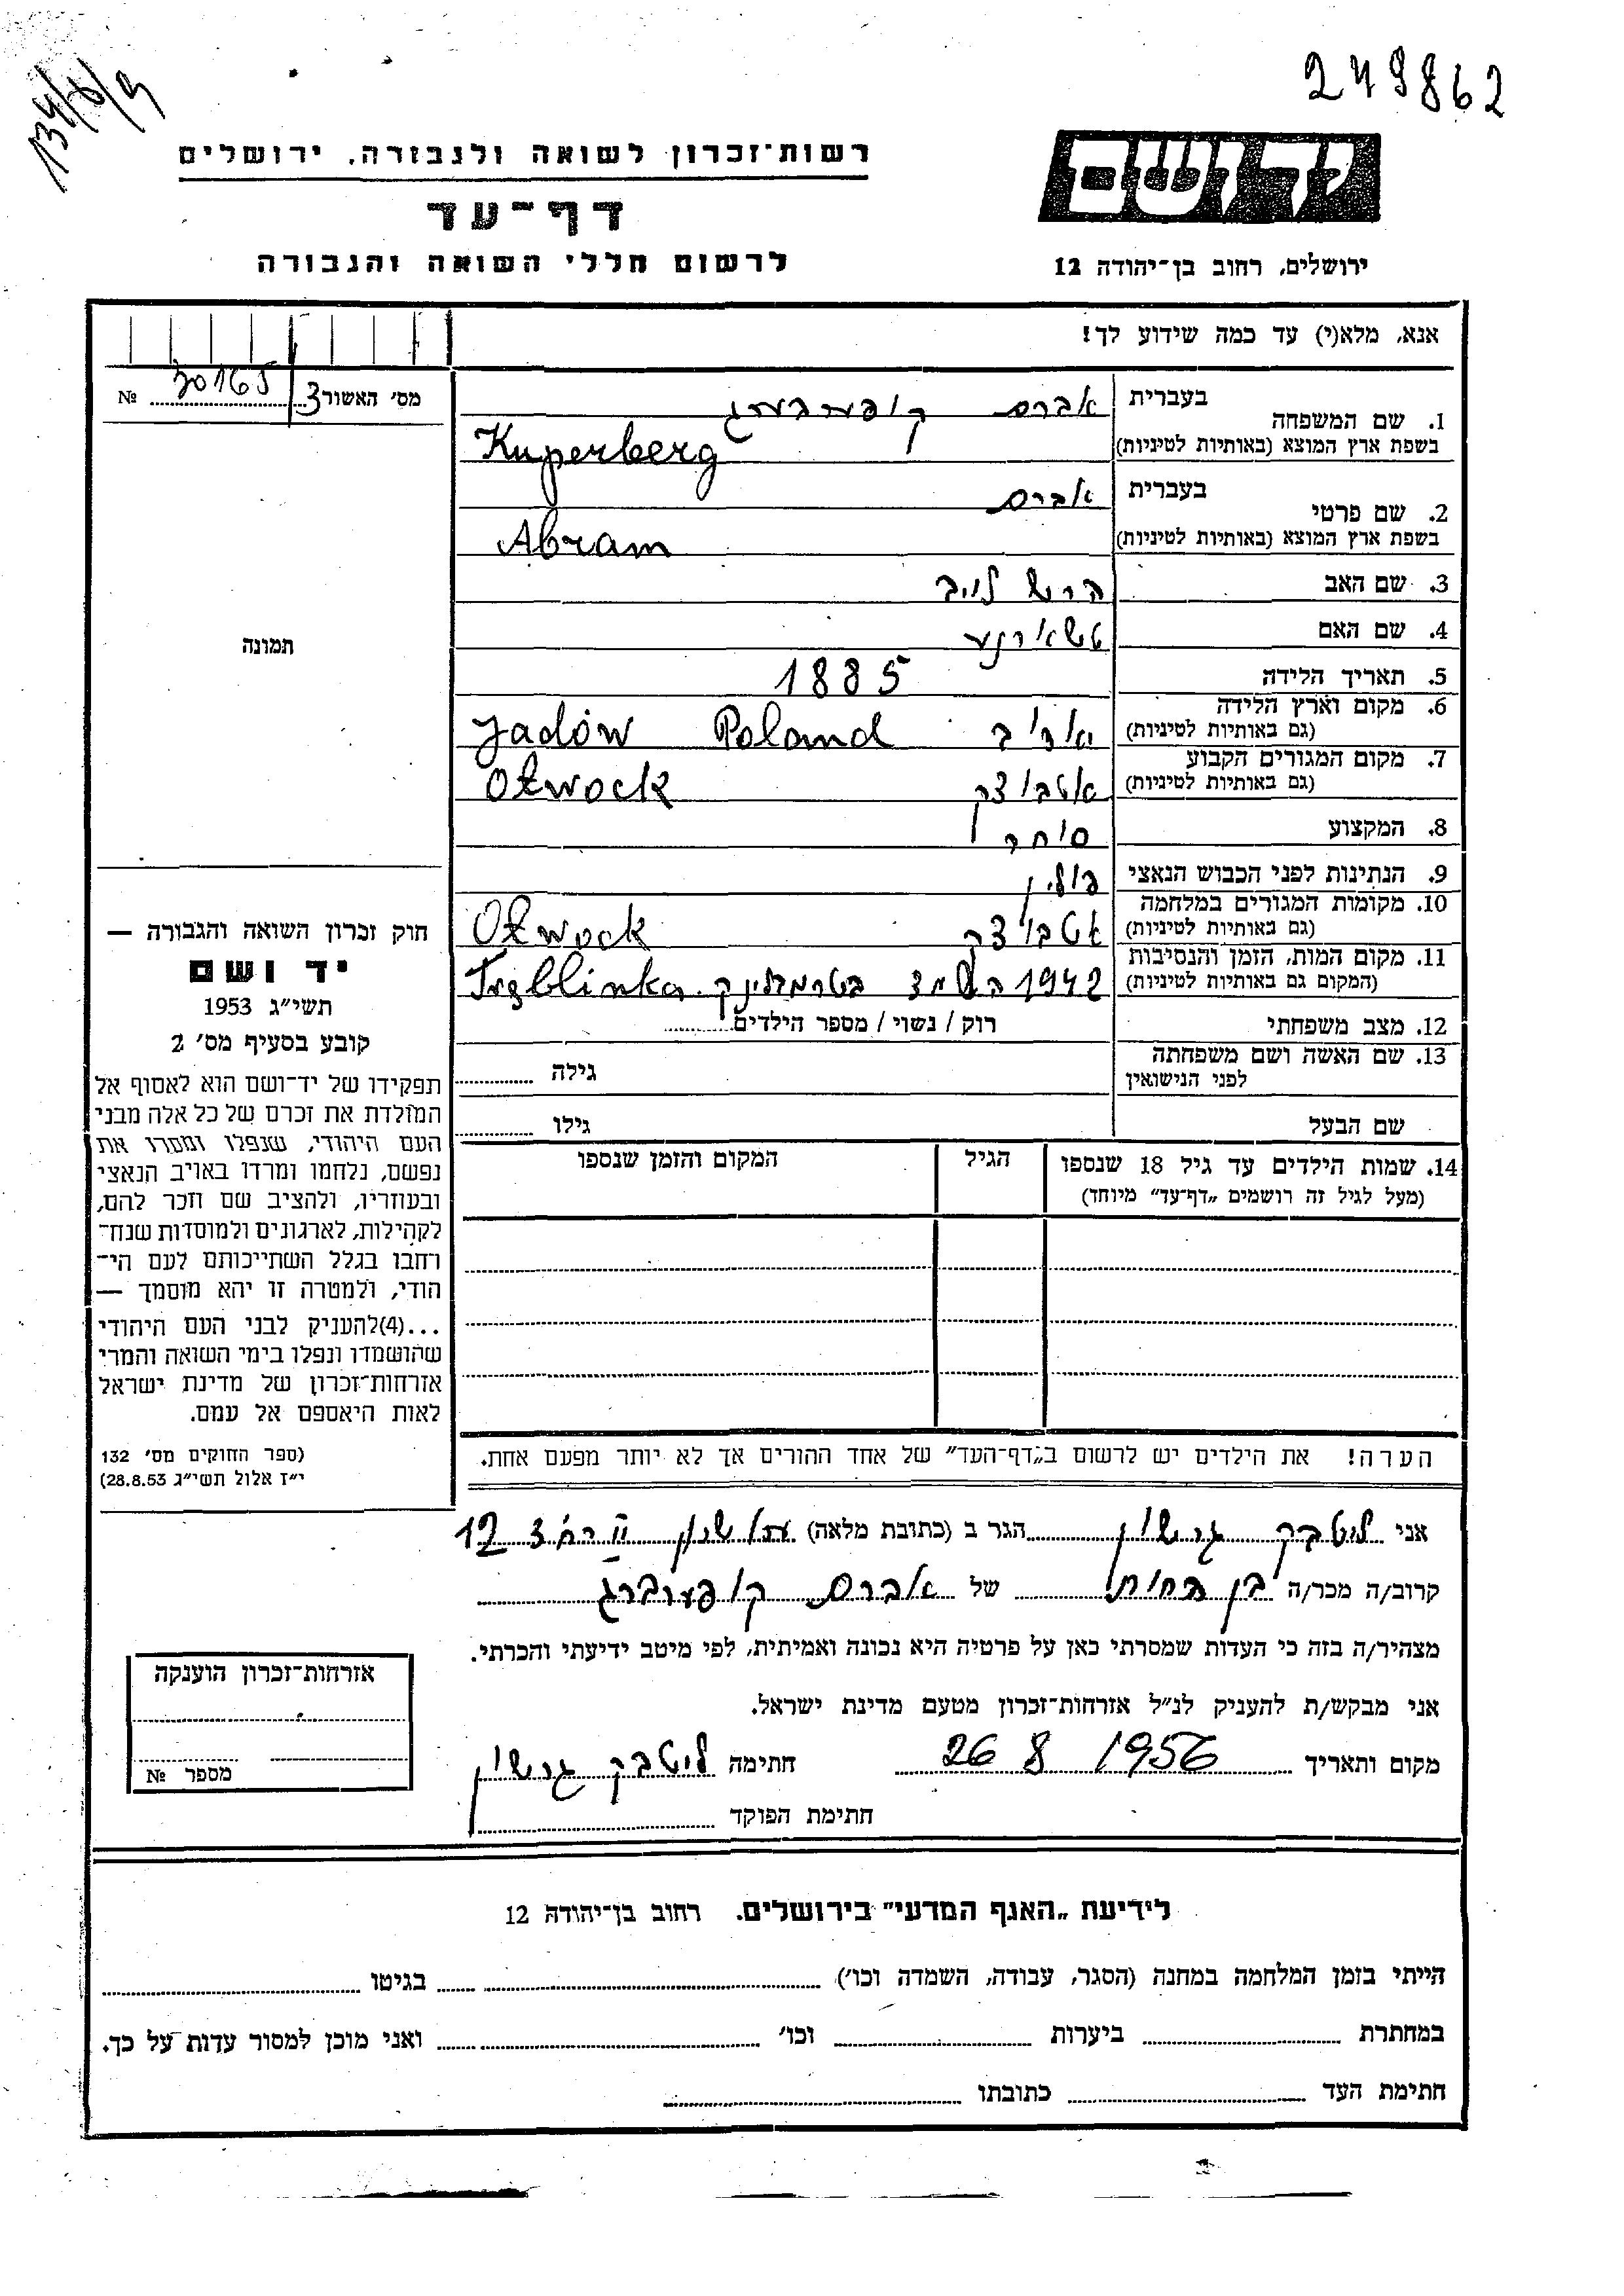 249862
134/6/9
רשות־זכרון לשואה ולגבורה, ירושלים
ידושם
דף־עד
ירושלים, רחוב בן־יהודה 12
לרשום חללי השואה והגבורה
אנא, מלא(י) עד כמה שידוע לך!
מס׳ האשור 3/ 70165 №
בעברית אברם קופערבערג
1. שם המשפחה
בשפת ארץ המוצא (באותיות לטיניות) Kuperberg
בעברית אברם
2. שם פרטי
בשפת ארץ המוצא (באותיות לטיניות) Abram
3. שם האב הרש לייב
4. שם האם טשארנע
5. תאריך הלידה 1885
6. מקום וארץ הלידה
(גם באותיות לטיניות) יאדוב Poland Jadów
7. מקום המגורים הקבוע
(גם באותיות לטיניות) אטבוצק Otwock
8. המקצוע סוחר
9. הנתינות לפני הכבוש הנאצי פולין
10. מקומות המגורים במלחמה
(גם באותיות לטיניות) אטבוצק Otwock
11. מקום המות, הזמן והנסיבות
(המקום גם באותיות לטיניות) 1942 השמד בטרעבלינקה Treblinka
12. מצב משפחתי רוק / נשוי / מספר הילדים
13. שם האשה ושם משפחתה
לפני הנישואין גילה
שם הבעל גילו
14. שמות הילדים עד גיל 18 שנספו הגיל המקום והזמן שנספו
(מעל לגיל זה רושמים „דף־עד” מיוחד)
הערה! את הילדים יש לרשום ב„דף־העד” של אחד ההורים אך לא יותר מפעם אחת.
תמונה
חוק זכרון השואה והגבורה —
יד ושם
תשי״ג 1953
קובע בסעיף מס׳ 2
תפקידו של יד־ושם הוא לאסוף אל
המולדת את זכרם של כל אלה מבני
העם היהודי, שנפלו ומסרו את
נפשם, נלחמו ומרדו באויב הנאצי
ובעוזריו, ולהציב שם וזכר להם,
לקהילות, לארגונים ולמוסדות שנח־
רחבו בגלל השתייכותם לעם הי־
הודי, ולמטרה זו יהא מוסמך —
...(4)להעניק לבני העם היהודי
שהושמדו ונפלו בימי השואה והמרי
אזרחות־זכרון של מדינת ישראל
לאות היאספם אל עמם.
(ספר החוקים מס׳ 132
י״ז אלול תשי״ג 28.8.53)
אני ליטבק גרשון הגר ב (כתובת מלאה) 12
קרוב/ה מכר/ה בן החות של אברם קופערברג
מצהיר/ה בזה כי העדות שמסרתי כאן על פרטיה היא נכונה ואמיתית, לפי מיטב ידיעתי והכרתי.
אני מבקש/ת להעניק לנ״ל אזרחות־זכרון מטעם מדינת ישראל.
מקום ותאריך 26 8 1956 חתימה ליטבק גרשון
חתימת הפוקד
אזרחות־זכרון הוענקה
מספר №
לידיעת „האגף המדעי” בירושלים. רחוב בן־יהודה 12
הייתי בזמן המלחמה במחנה (הסגר, עבודה, השמדה וכו׳) בגיטו
במחתרת ביערות וכו׳ ואני מוכן למסור עדות על כך.
חתימת העד כתובתו